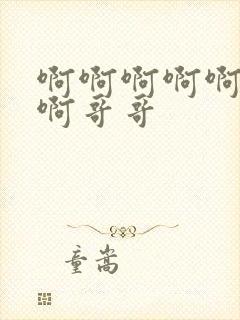 啊啊啊啊啊
啊哥哥
童嵩